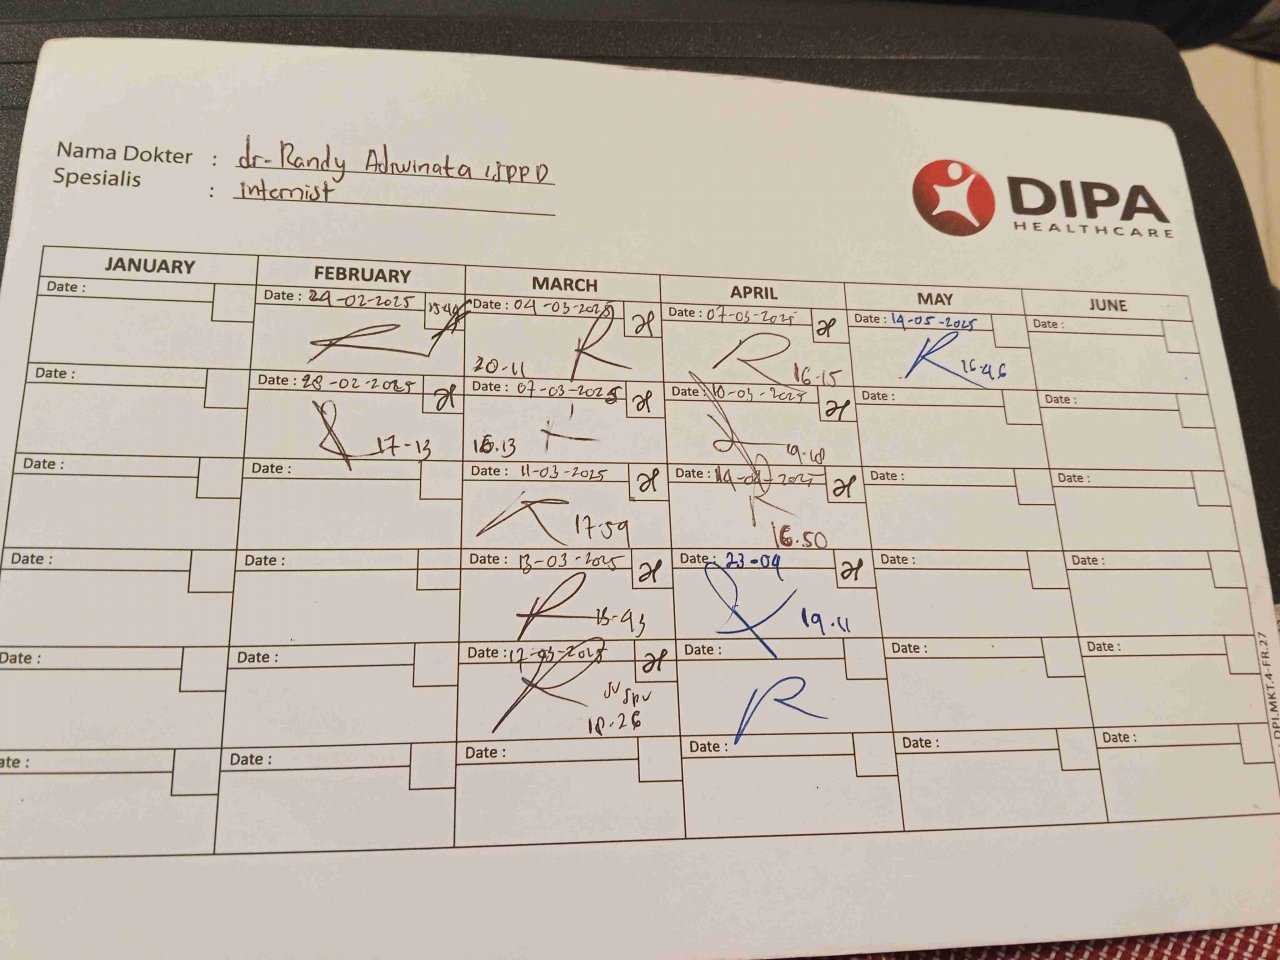 Nama Dokter : dr. Randy Adiwinata, SPPD
Spesialis : internist
DIPA
HEALTHCARE
JANUARY FEBRUARY MARCH APRIL MAY JUNE
Date : Date : 24-02-2025 Date : 04-03-2025 Date : 07-03-2025 Date : 14-05-2025 Date :
20-11 16-15 16-46
Date : Date : 28-02-2025 Date : 07-03-2025 Date : 10-03-2025 Date : Date :
17-13 16.13 19-18
Date : Date : Date : 11-03-2025 Date : 14-04-2025 Date : Date :
17-59 16.50
Date : Date : Date : 13-03-2025 Date : 23-04 Date : Date :
19.11
Date : Date : Date : 17-03-2025 Date : Date : Date :
JV SPV
18.26
Date : Date : Date : Date : Date : Date :
DPI.MKT.4-FR.27